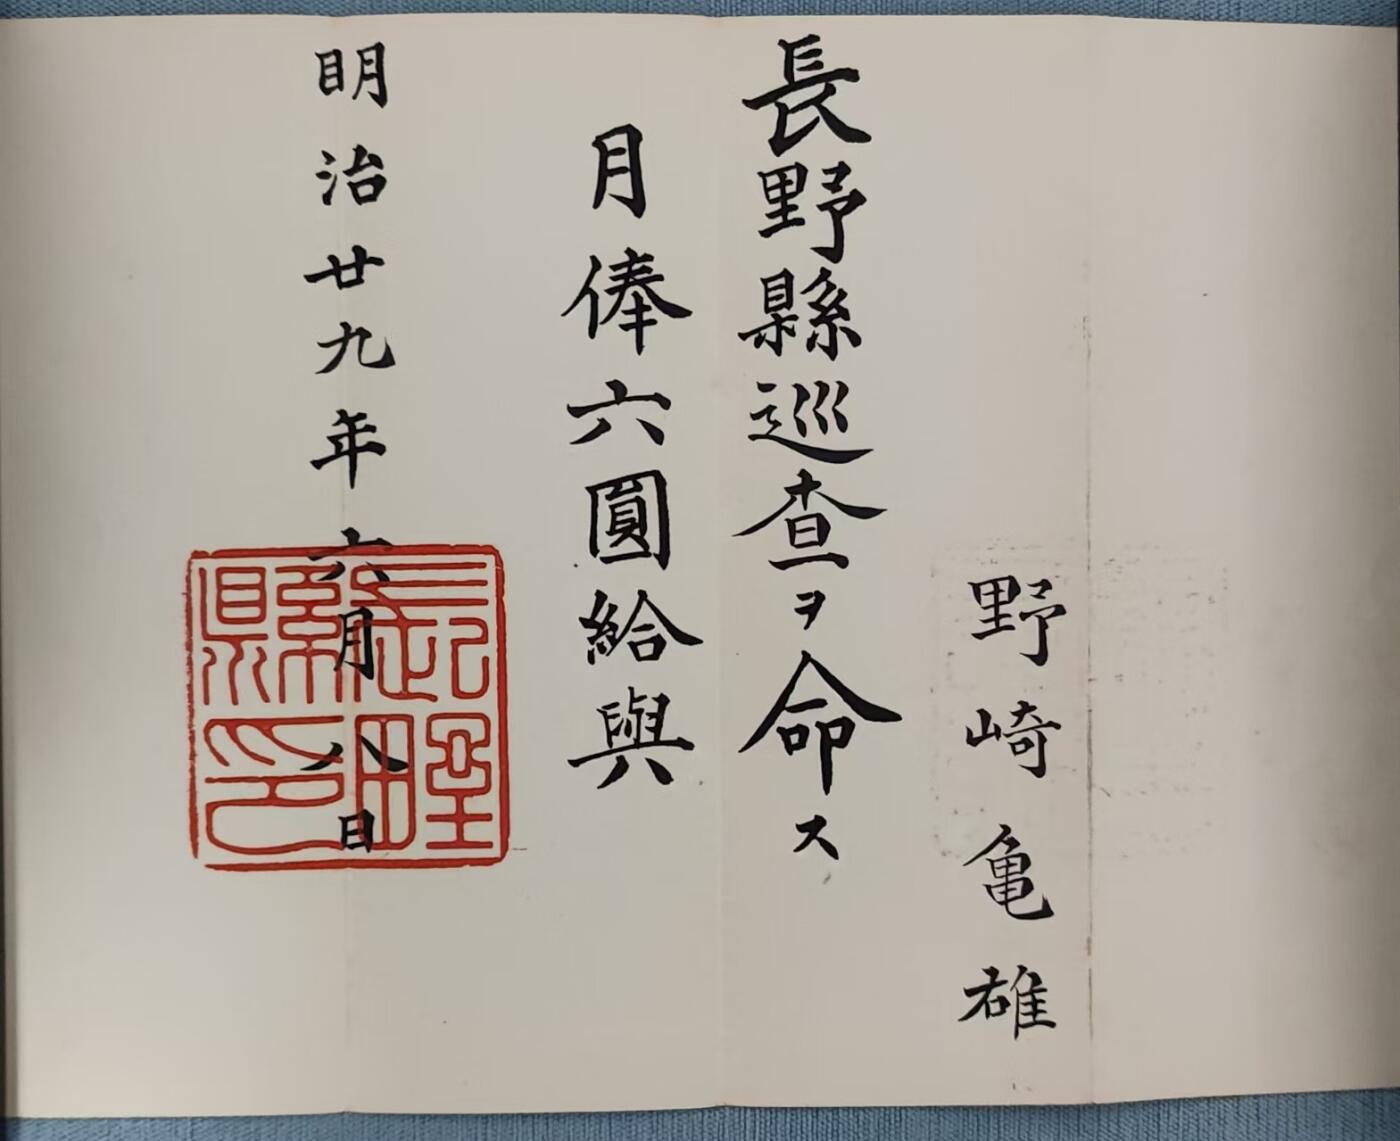 野崎亀雄
長野縣巡査ヲ命ス
月俸六圓給與
明治廿九年六月八日
長野縣印